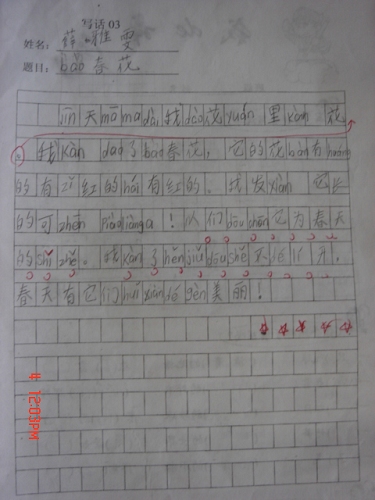 写话 03
姓名: 薛雅雯
题目: bào 春花
jīn 天 mā ma dài 我 dào 花 yuán 里 kàn 花
我 kàn dào 了 bào 春花, 它的花 bàn 有 huáng
的有 zǐ 红的 hái 有红的。我发 xiàn 它长
的可 zhēn piào liàng a! 人们 dōu chēng 它为春天
的 shǐ zhě。我 kàn 了 hěn jiǔ dōu shě 不 dé
春天有它们 huì xiǎn dé gèng 美丽!
4 12:03PM